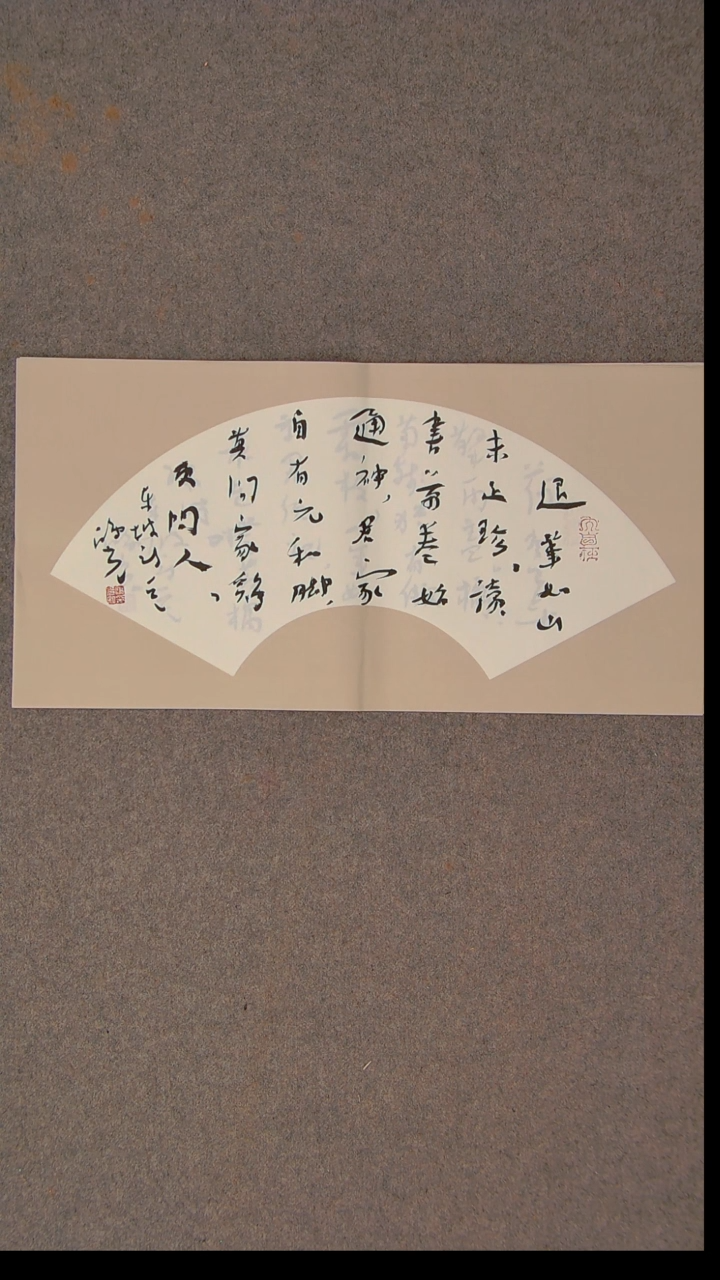 退筆如山
未足珍，讀
書萬卷始
通神，君家
自有元和脚，
莫问家鷄
更问人、
东坡诗